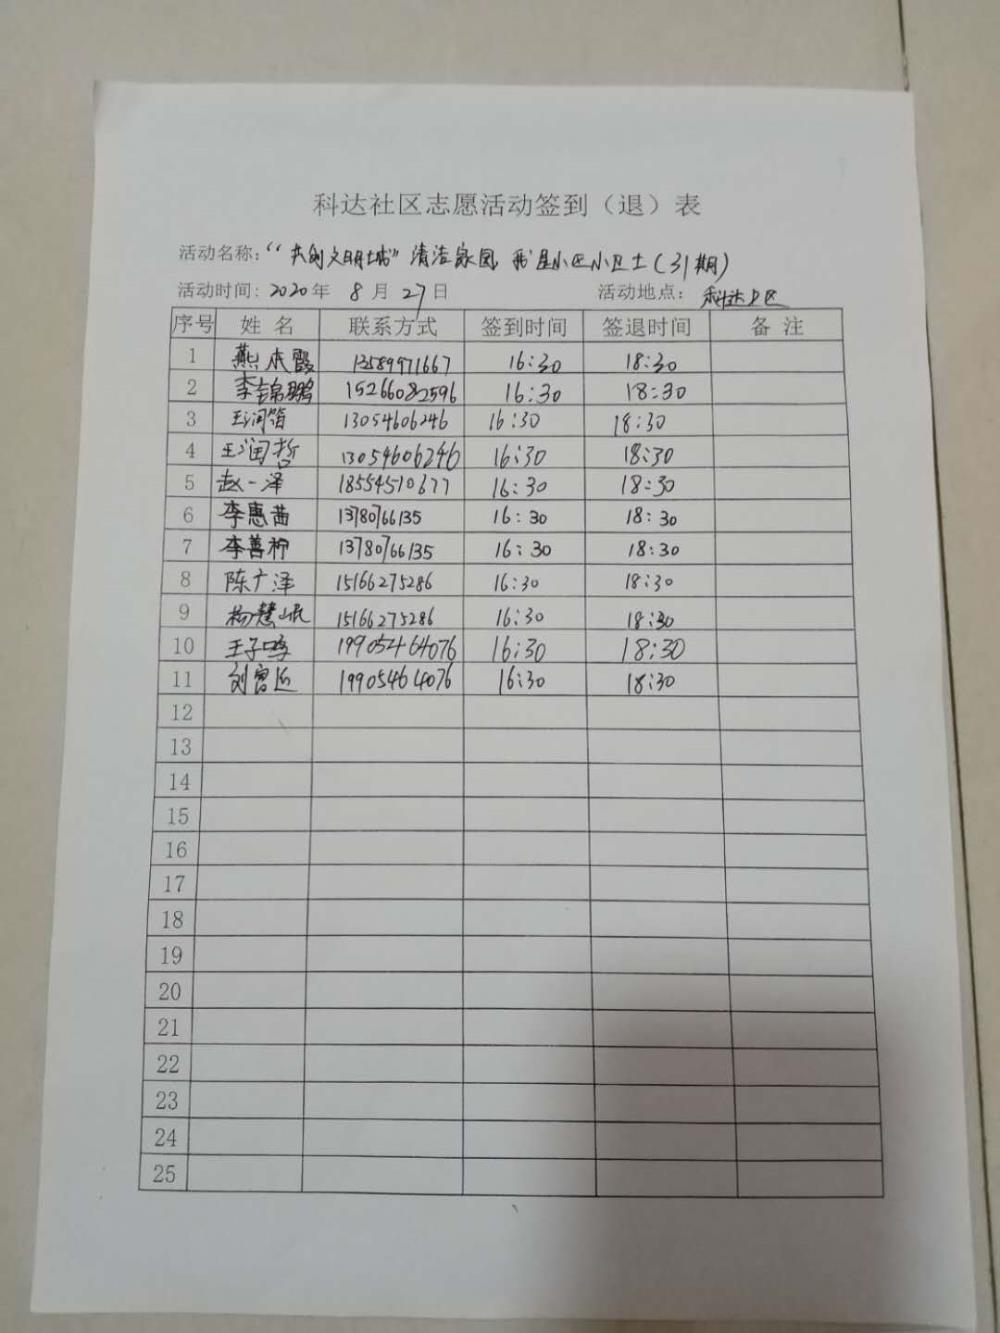 科达社区志愿活动签到（退）表
活动名称：“共创文明城”清洁家园 我是小区小卫士（31期）
活动时间：2020年 8月 27日 活动地点：科达小区
序号 姓名 联系方式 签到时间 签退时间 备注
1 燕木霞 13589971667 16:30 18:30
2 李锦鹏 15266082596 16:30 18:30
3 王润笛 13054606246 16:30 18:30
4 王润哲 13054606246 16:30 18:30
5 赵一泽 18554510677 16:30 18:30
6 李惠茜 13780766135 16:30 18:30
7 李善柠 13780766135 16:30 18:30
8 陈广泽 15166275286 16:30 18:30
9 杨慧岷 15166275286 16:30 18:30
10 王子鸣 19905464076 16:30 18:30
11 刘 19905464076 16:30 18:30
12
13
14
15
16
17
18
19
20
21
22
23
24
25